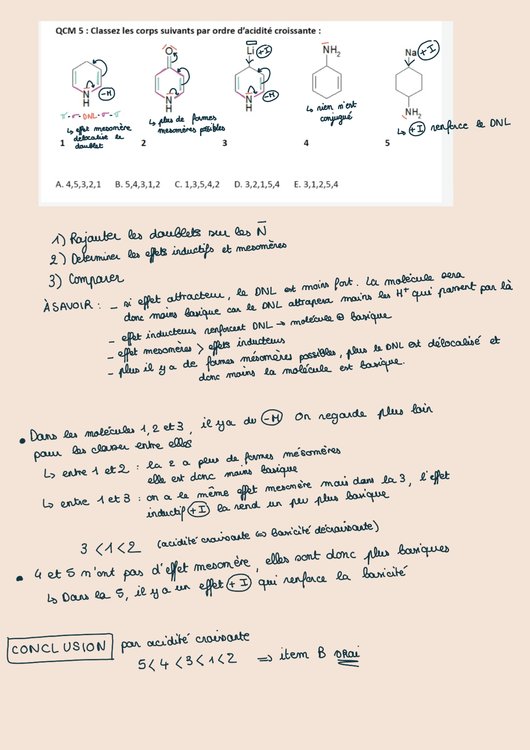 QCM 5 : Classez les corps suivants par ordre d'acidité croissante :
Li +I
NH₂
Na +I
O
N
H
-M
N
H
N
H
-M
NH₂
π - σ - DNL - σ - π
↳ effet mésomère
délocalise le
doublet
↳ plus de formes
mésomères possibles
↳ rien n'est
conjugué
↳ +I renforce le DNL
1 2 3 4 5
A. 4,5,3,2,1 B. 5,4,3,1,2 C. 1,3,5,4,2 D. 3,2,1,5,4 E. 3,1,2,5,4
1) Rajouter les doublets sur les N
2) Déterminer les effets inductifs et mésomères
3) Comparer
À SAVOIR : - si effet attracteur, le DNL est moins fort. La molécule sera
donc moins basique car le DNL attrapera moins les H⁺ qui passent par là
- effet inducteurs renforcent DNL → molécule ⊕ basique
- effet mésomères > effets inducteurs
- plus il y a de formes mésomères possibles, plus le DNL est délocalisé et
donc moins la molécule est basique.
• Dans les molécules 1, 2 et 3, il y a du -M On regarde plus loin
pour les classer entre elles
↳ entre 1 et 2 : la 2 a plus de formes mésomères
elle est donc moins basique
↳ entre 1 et 3 : on a le même effet mésomère mais dans la 3, l'effet
inductif +I la rend un peu plus basique
3 < 1 < 2 (acidité croissante ⇔ basicité décroissante)
• 4 et 5 n'ont pas d'effet mésomère, elles sont donc plus basiques
↳ Dans la 5, il y a un effet +I qui renforce la basicité
CONCLUSION par acidité croissante
5 < 4 < 3 < 1 < 2 ⇒ item B VRAI